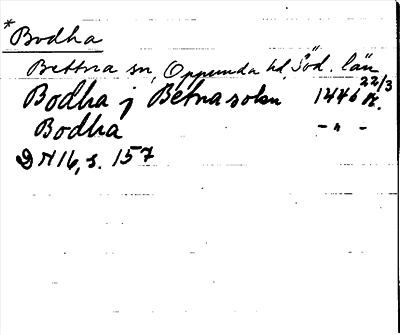 *Bodha
Bettna sn, Oppunda hd, Söd. län
Bodha j Betnasokn 1446 22/3 K.
Bodha - " -
D N 16, s. 157